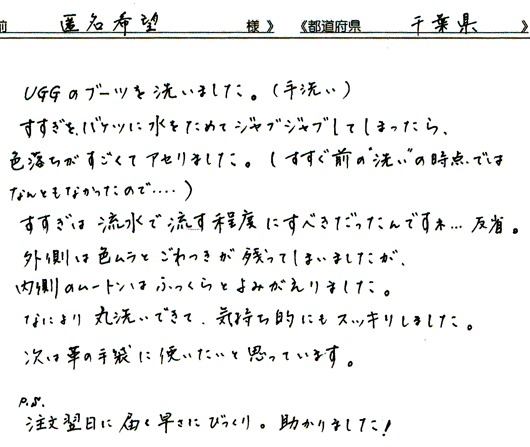 前 匿名希望 様》 《都道府県 千葉県 》
UGGのブーツを洗いました。(手洗い)
すすぎを、バケツに水をためてジャブジャブしてしまったら、
色落ちがすごくてアセリました。(すすぐ前の"洗い"の時点では
なんともなかったので‥‥)
すすぎは流水で流す程度にすべきだったんですネ… 反省。
外側は色ムラとごわつきが残ってしまいましたが、
内側のムートンはふっくらとよみがえりました。
なにより丸洗いできて、気持ち的にもスッキリしました。
次は革の手袋に使いたいと思っています。
P.S.
注文翌日に届く早さにびっくり。助かりました!